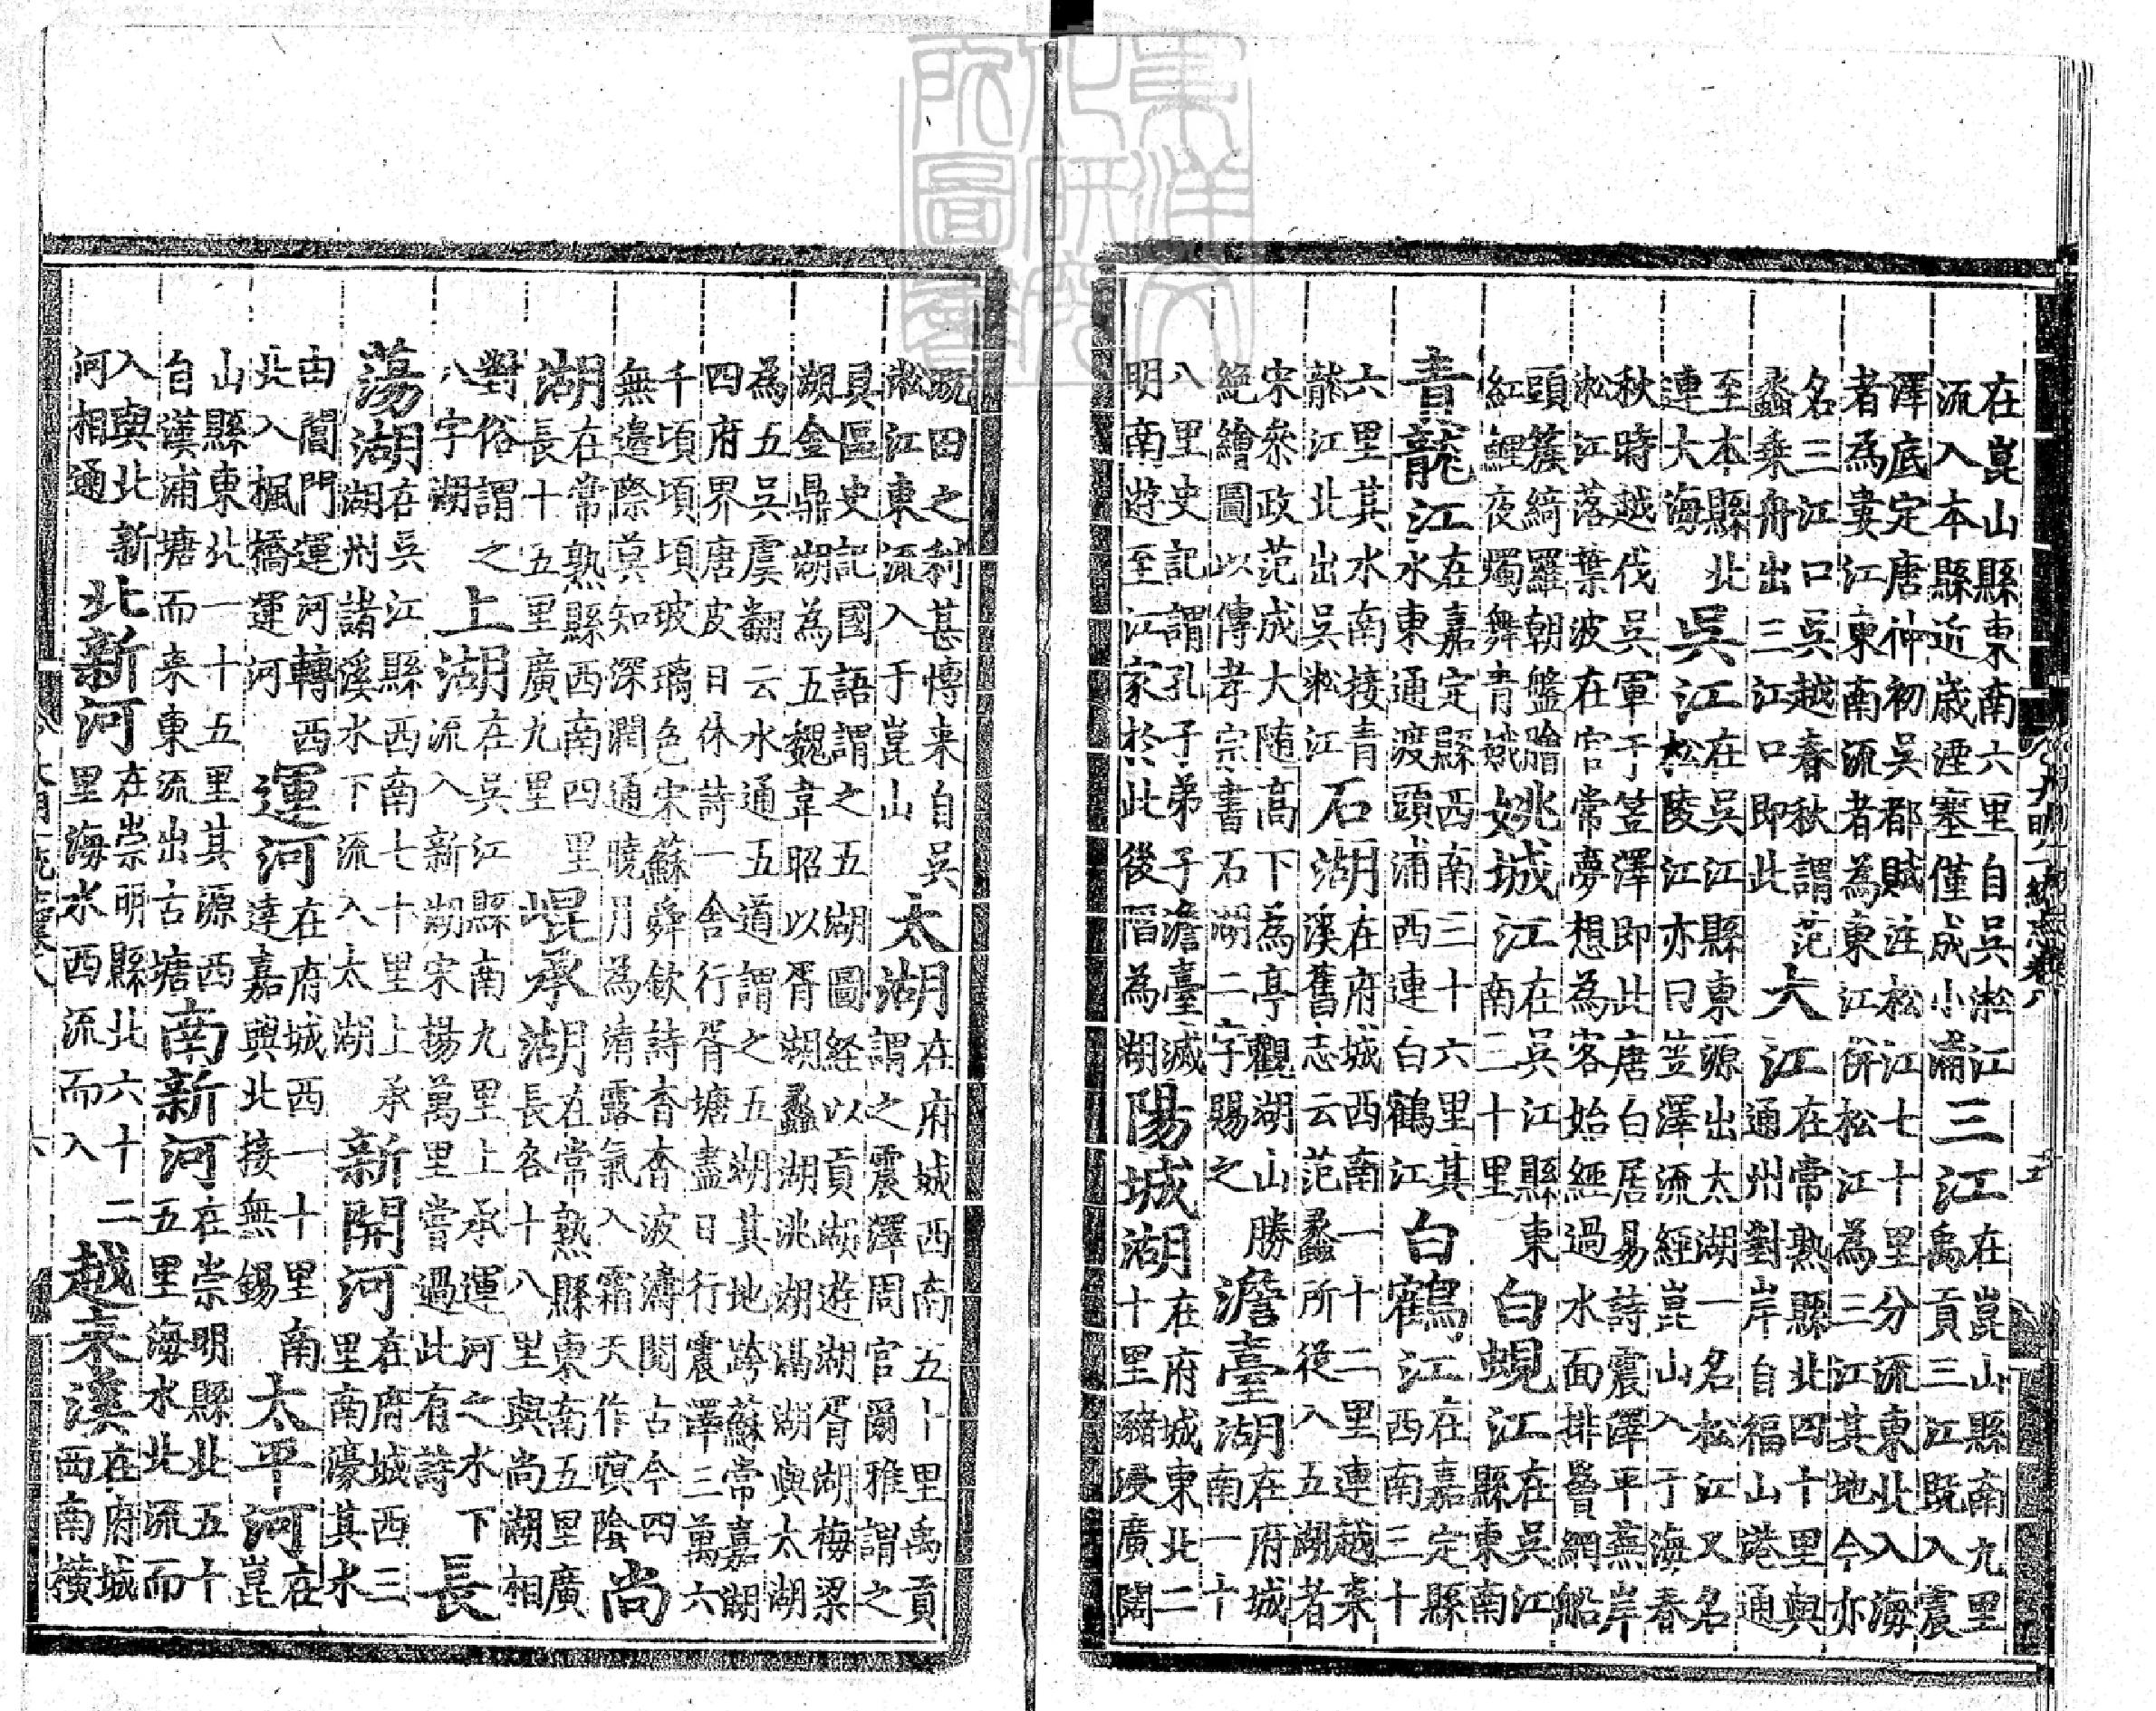 在崑山縣東南六里自吳淞江流入本縣近歲湮塞僅成小浦三江在崑山縣南九里禹貢三江既入震
澤底定唐仲初吳都賦注松江七十里分流東北入海者為婁江東南流者為東江併松江為三江其地今亦
名三江口吳越春秋謂范蠡乗舟出三江口即此大江在常熟縣北四十里與通州對岸自福山港通
至本縣北連大海吳江在吳江縣東源出太湖一名松江又名松陵江亦曰笠澤流經崑山入于海春
秋時越伐吳軍于笠澤即此唐白居易詩震澤平蕪岸淞江落葉波在官常夢想為客始經過水面排罾網船
頭簇綺羅朝盤鱠紅鯉夜燭舞青娥姚城江在吳江縣東南三十里白蜆江在吳江縣東南
青龍江在嘉定縣西南三十六里其水東通渡頭浦西連白鶴江白鶴江在嘉定縣西南三十
六里其水南接青龍江北出吳淞江石湖在府城西南一十二里連越来溪舊志云范蠡所從入五湖者
宋叅政范成大随高下為亭觀湖山勝絶繪圖以傳孝宗書石湖二字賜之澹臺湖在府城南一十
八里史記謂孔子弟子澹臺滅明南遊至江家於此後陷為湖陽城湖在府城東北二十里豬浸廣闊
溉田之利甚愽来自吳淞江東流入于崑山太湖在府城西南五十里禹貢謂之震澤周官爾雅謂之
具區史記國語謂之五湖圖経以貢湖遊湖胥湖梅梁湖金鼎湖為五魏韋昭以胥湖蠡湖洮湖滆湖與太湖
為五吳虞翻云水通五道謂之五湖其地跨蘇常嘉湖四府界唐皮日休詩一舍行胥塘盡日行震澤三萬六
千頃頃頃玻璃色宋蘇舜欽詩杳杳波濤閱古今四無邊際莫知深潤通曉月為清露氣入霜天作暝陰尚
湖在常熟縣西南四里長十五里廣九里崐承湖在常熟縣東南五里廣長各十八里與尚湖相
對俗謂之八字湖上湖在吳江縣南九里上承運河之水下流入新湖宋揚萬里嘗過此有詩長
蕩湖在吳江縣西南七十里上承湖州諸溪水下流入太湖新開河在府城西三里南濠其水
由閶門運河轉西北入楓橋運河運河在府城西一十里南達嘉興北接無錫太平河在崑
山縣東北一十五里其源西自漢浦塘而来東流出古塘南新河在崇明縣北五十五里海水北流而
入與北新河相通北新河在崇明縣北六十二里海水西流而入越来溪在府城西南橫